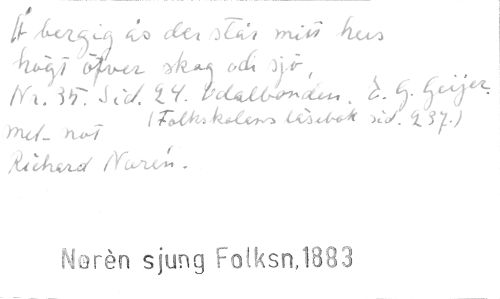 Å bergig ås der står mitt hus
högt öfver skog och sjö,
Nr. 35. Sid. 24. Odalbonden. E. G. Geijer.
(Folkskolans läsebok sid. 237.)
med not
Richard Norén.
Norèn sjung Folksn,1883